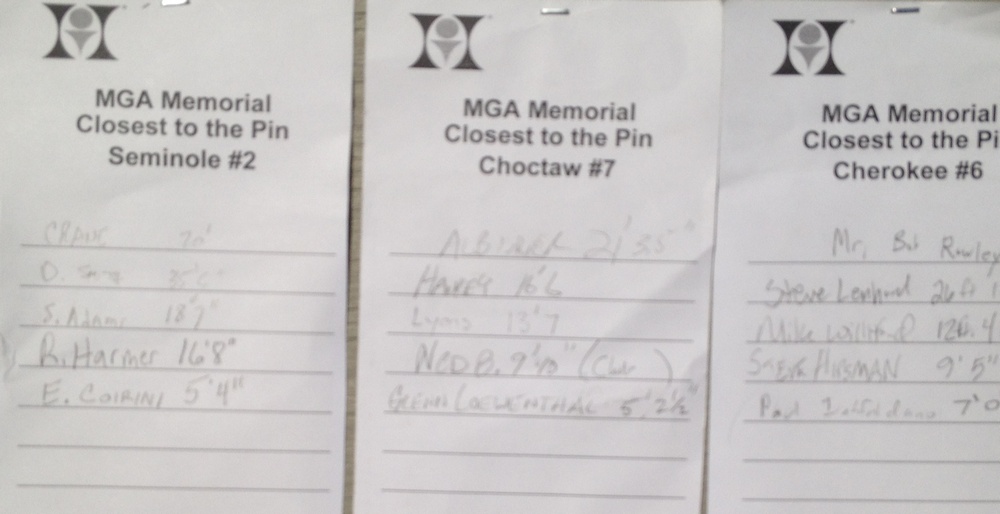 MGA Memorial
Closest to the Pin
Seminole #2
S. Adams 18'7"
R. Harmer 16'8"
E. COIRINI 5'4"
MGA Memorial
Closest to the Pin
Choctaw #7
21'
16'6
Lyms 13'7
NED B. 9'10"
GLENN LOEWENTHAL 5'2½"
MGA Memorial
Closest to the Pi
Cherokee #6
Mr. Bob Rowley
Steve Lenhard 26 ft
Mike
STEVE HIRSMAN 9'5"
Paul 7'0